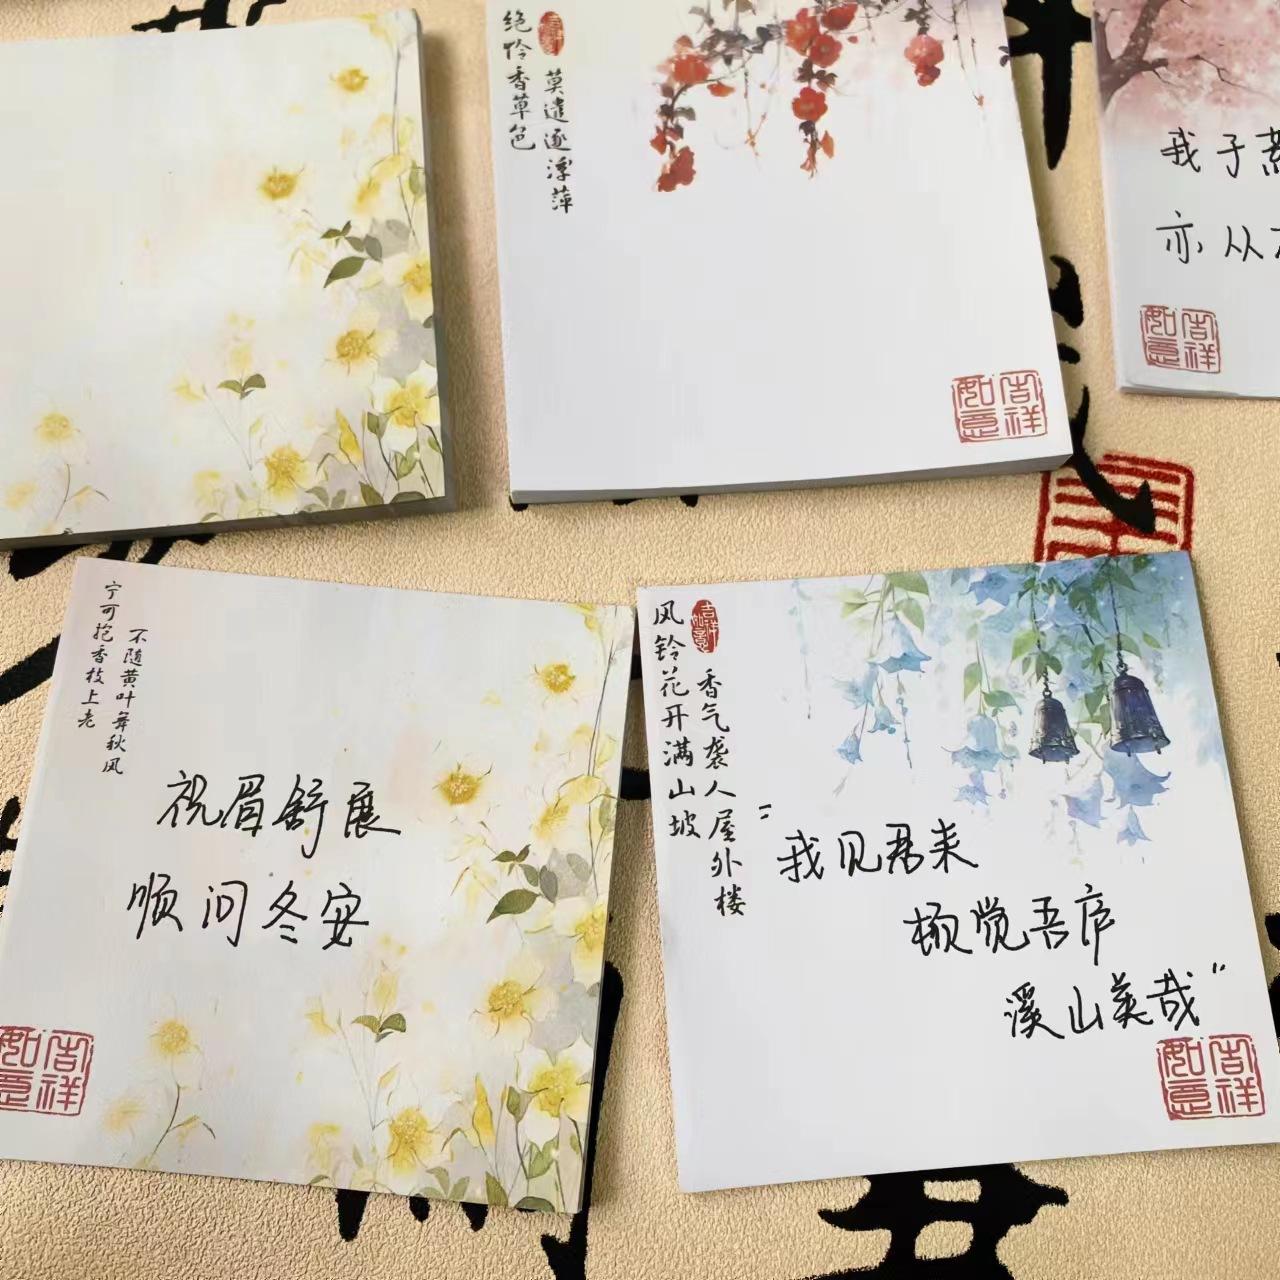 绝怜香草色
莫遣逐浮萍
吉祥如意
吉祥如意
我于
亦从
吉祥如意
宁可抱香枝上老
不随黄叶舞秋风
祝眉舒展
顺问冬安
吉祥如意
风铃花开满山坡
香气袭人屋外楼
吉祥如意
"我见君来
顿觉吾庐
溪山美哉"
吉祥如意